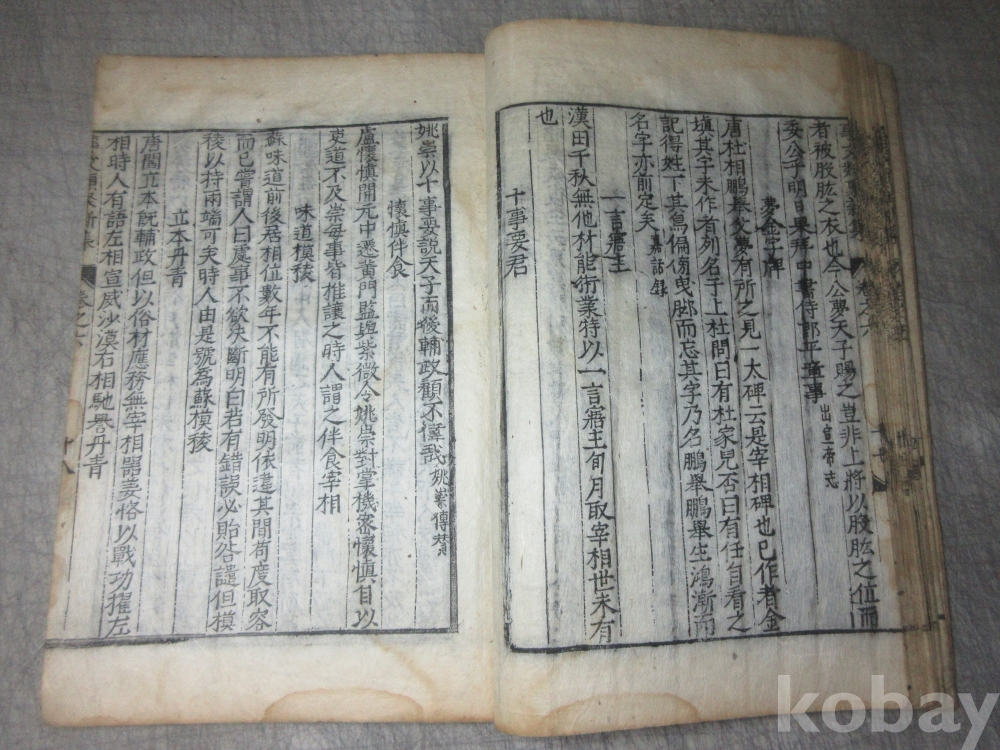 者被股肱之衣也今公夢天子賜之豈非上將以股肱之位而
委公乎明日果拜中書侍郎平章事 出宣帝志
夢金字牌
唐杜相鵬舉父夢有所之見一大碑云是宰相碑也已作者金
填其字未作者列名于上杜問曰有杜家兒否曰有任自看之
記得姓下其鳥偏傍曳脚而忘其字乃名鵬舉鵬舉生鴻漸而
名字亦前定矣 嘉話錄
一言寤主
漢田千秋無他材能術業特以一言寤主旬月取宰相世未有
也
十事要君
姚崇以十事要說天子而後輔政顧不偉哉 姚崇傳贊
懷慎伴食
盧懷慎開元中遷黃門監與紫微令姚崇對掌機密懷慎自以
吏道不及崇每事皆推讓之時人謂之伴食宰相
味道模稜
蘇味道前後居相位數年不能有所發明依違其間苟度取容
而已嘗謂人曰處事不欲決斷明白若有錯誤必貽咎譴但模
稜以持兩端可矣時人由是號為蘇模稜
立本丹青
唐閻立本既輔政但以俗材應務無宰相器姜恪以戰功擢左
相時人有語左相宣威沙漠右相馳譽丹青
十八
kobay